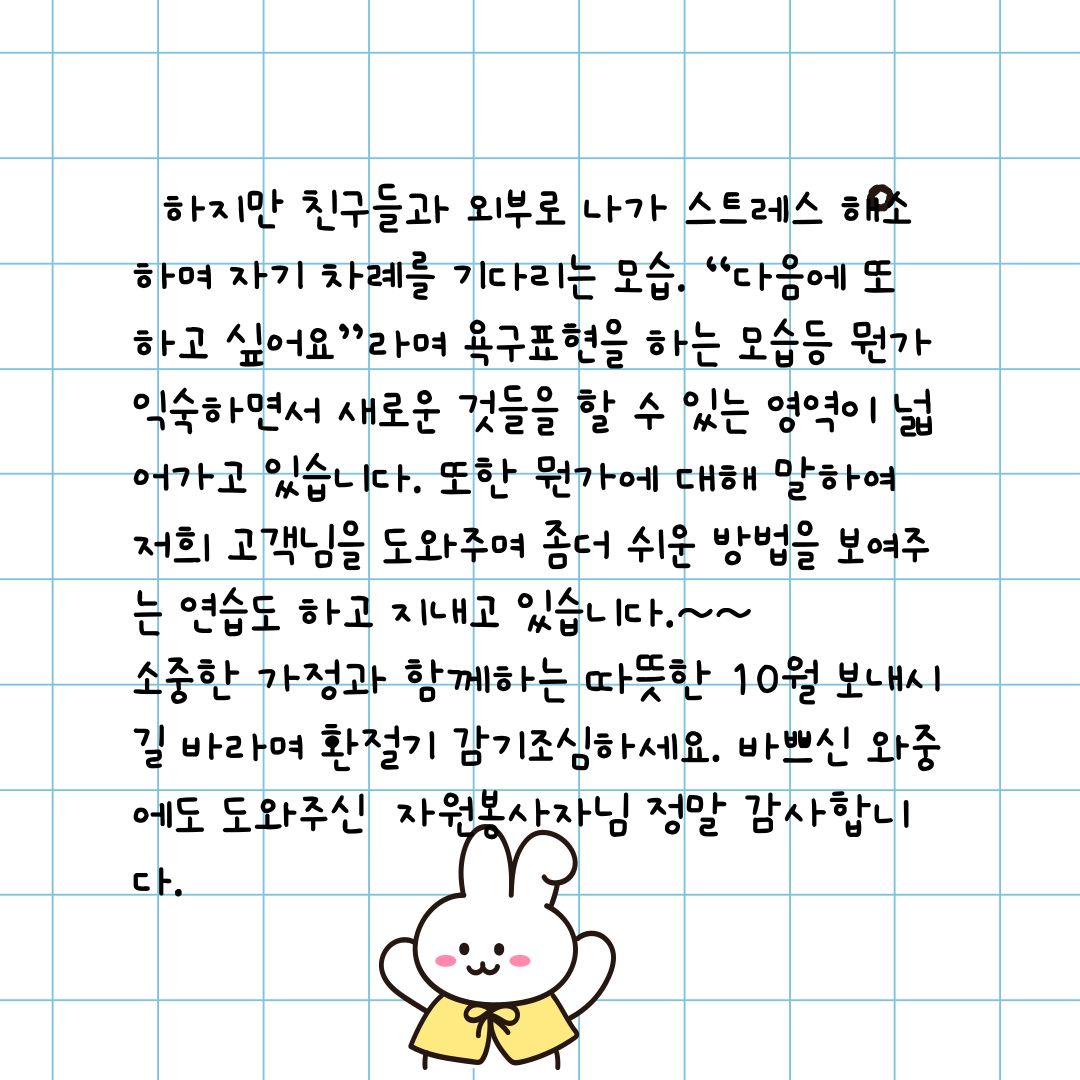 하지만 친구들과 외부로 나가 스트레스 해소
하며 자기 차례를 기다리는 모습. “다음에 또
하고 싶어요”라며 욕구표현을 하는 모습등 뭔가
익숙하면서 새로운 것들을 할 수 있는 영역이 넓
어가고 있습니다. 또한 뭔가에 대해 말하여
저희 고객님을 도와주며 좀더 쉬운 방법을 보여주
는 연습도 하고 지내고 있습니다.~~
소중한 가정과 함께하는 따뜻한 10월 보내시
길 바라며 환절기 감기조심하세요. 바쁘신 와중
에도 도와주신 자원봉사자님 정말 감사합니
다.